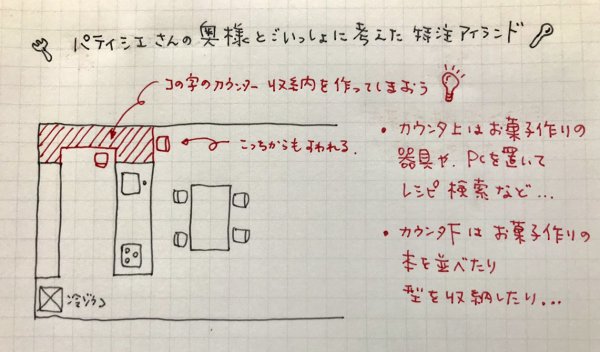 パティシエさんの奥様とごいっしょに考えた 特注アイランド
コの字のカウンター収納を作ってしまおう
こっちからもすわれる.
• カウンタ上はお菓子作りの
器具や、PCを置いて
レシピ検索など…
• カウンタ下はお菓子作りの
本を並べたり
型を収納したり…
冷ゾウコ